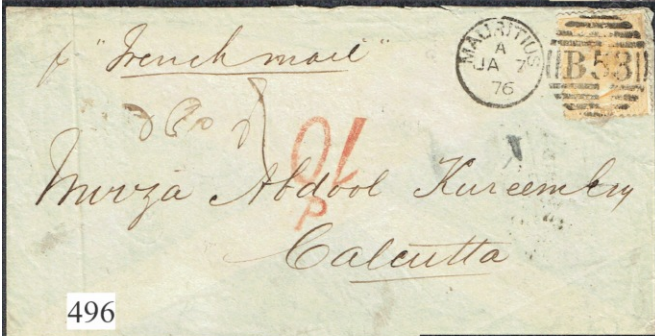 p "French mail"
MAURITIUS
A
JA 7
76
B53
Mirza Abdool Kureem
Calcutta
496